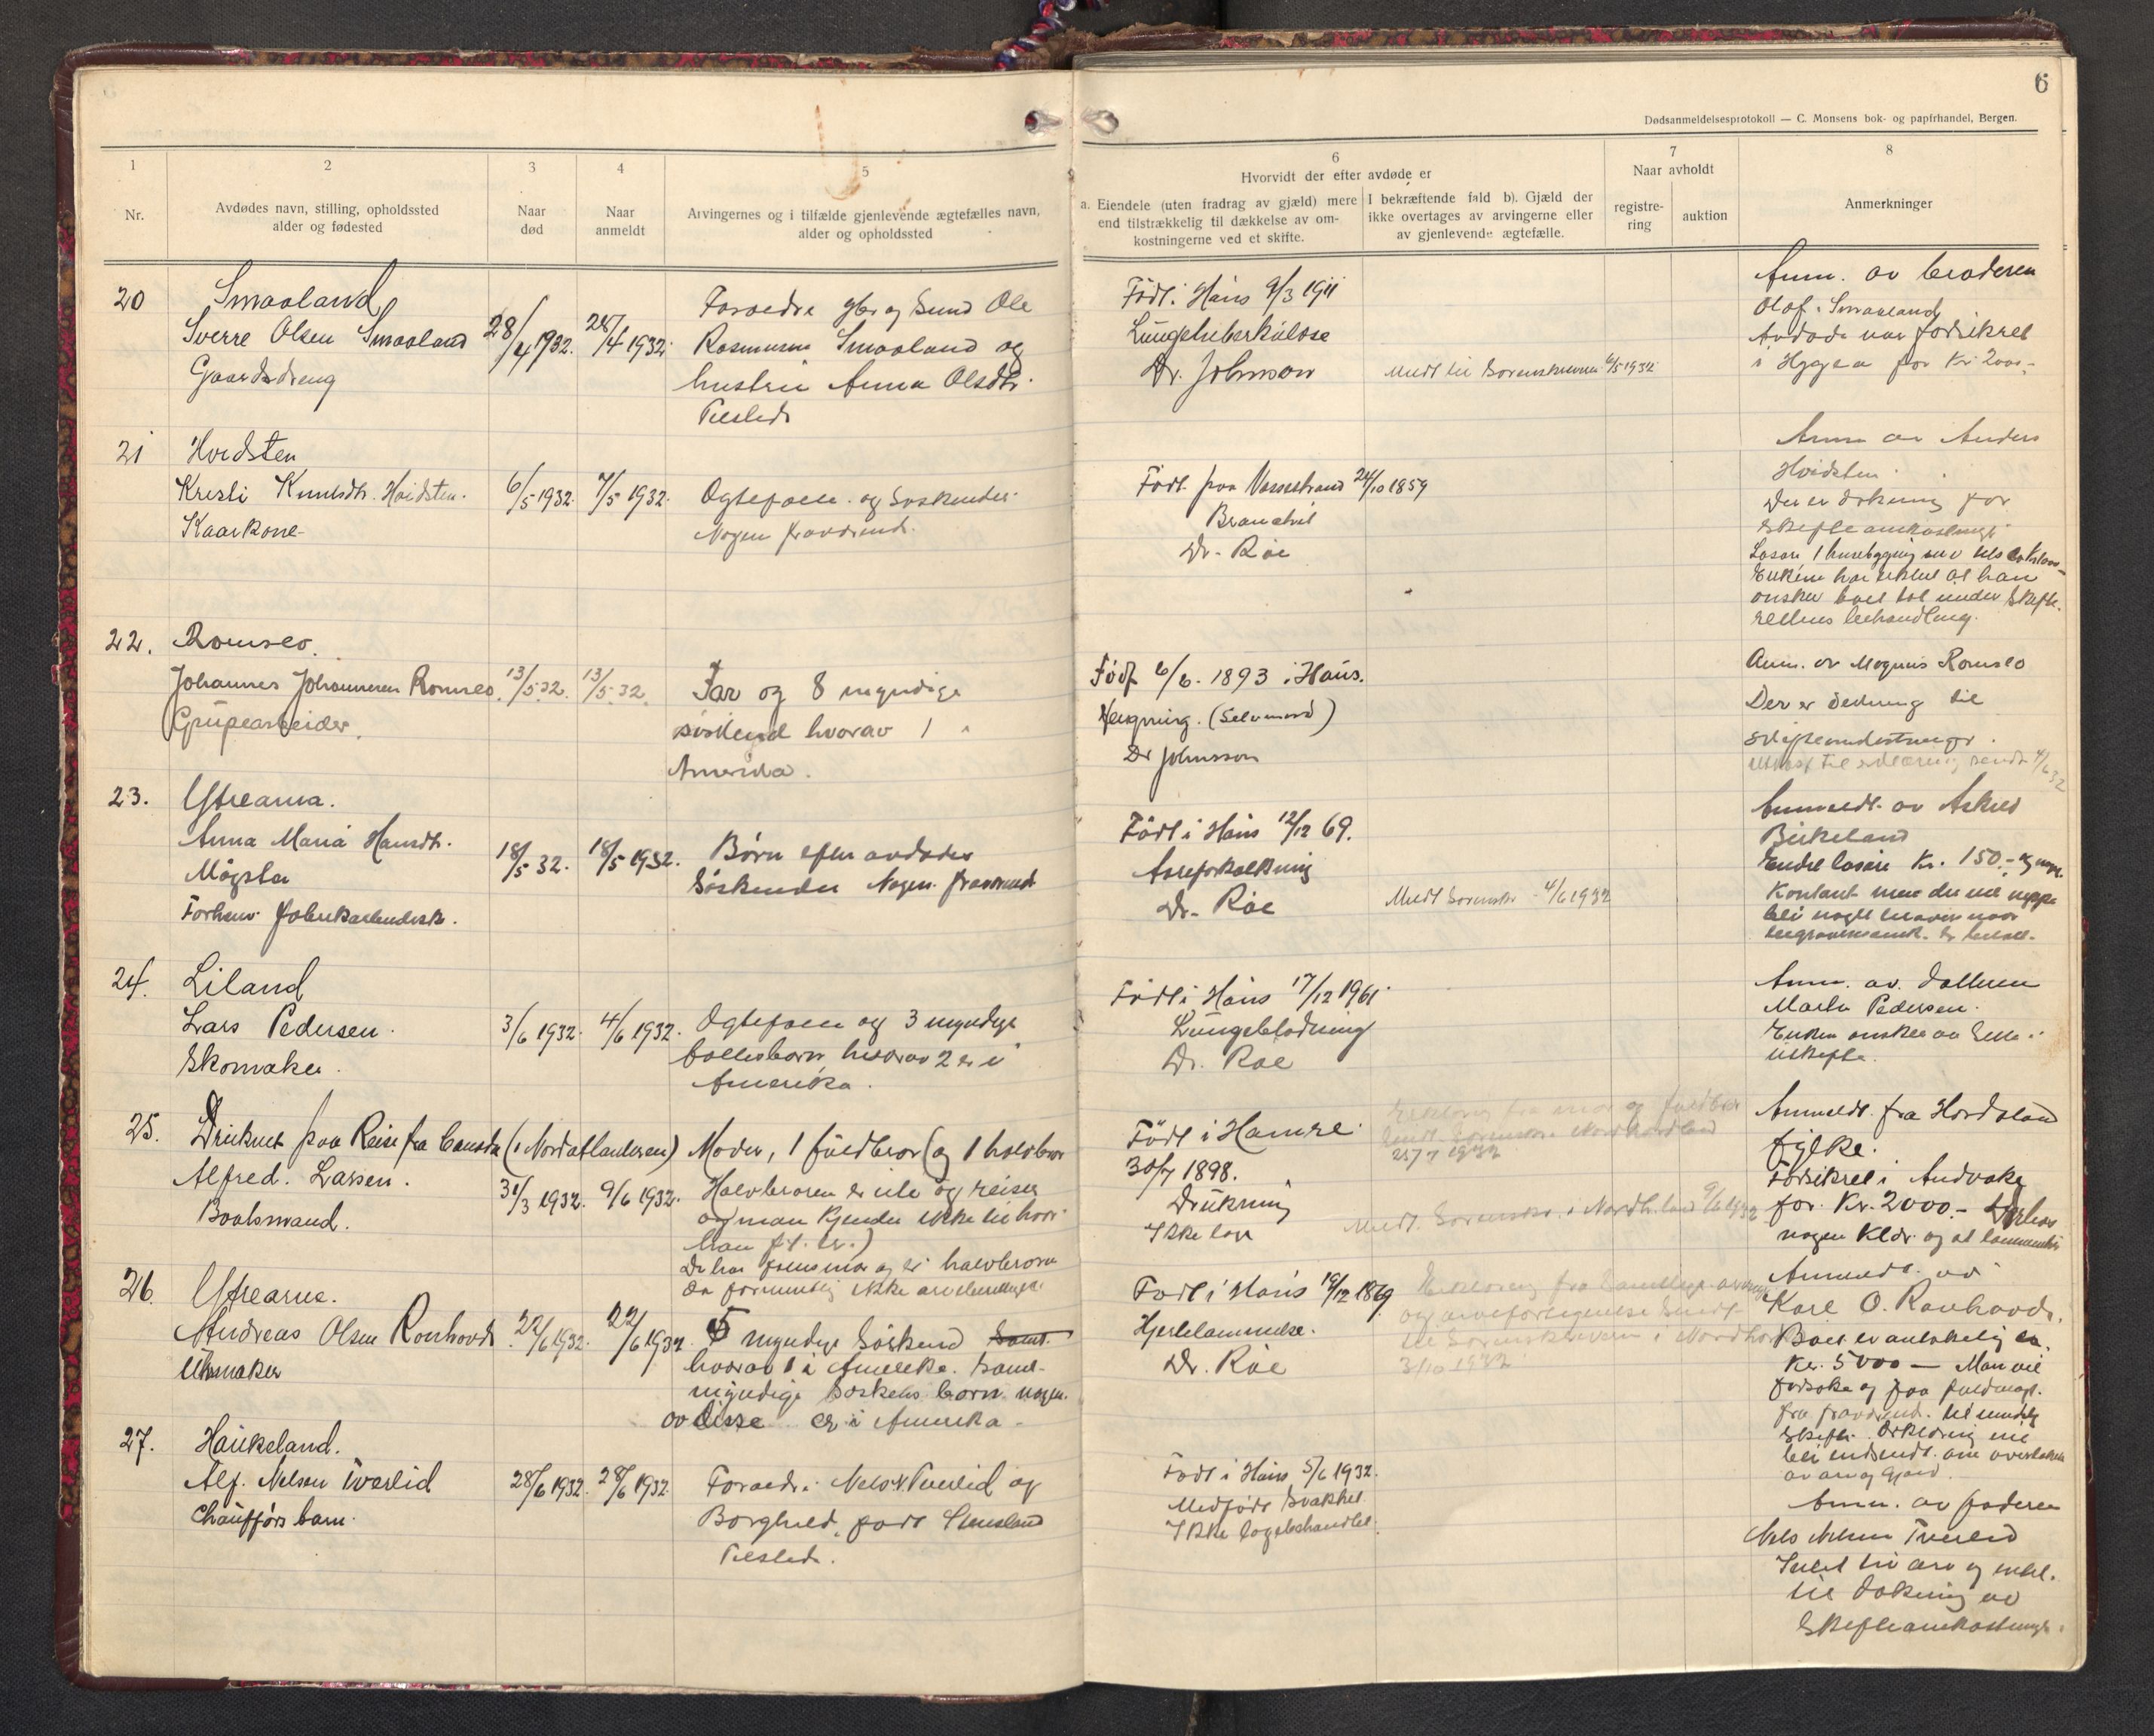 6
Dødsanmeldelsesprotokoll — C. Monsens bok- og papirhandel, Bergen.
1
2
3
4
5
6
7
8
Nr.
Avdødes navn, stilling, opholdssted
alder og fødested
Naar
død
Naar
anmeldt
Arvingernes og i tilfælde gjenlevende ægtefælles navn,
alder og opholdssted
Hvorvidt der efter avdøde er
a. Eiendele (uten fradrag av gjæld) mere
end tilstrækkelig til dækkelse av om-
kostningerne ved et skifte.
I bekræftende fald b). Gjæld der
ikke overtages av arvingerne eller
av gjenlevende ægtefælle.
Naar avholdt
registre-
ring
auktion
Anmerkninger
20
Smaaland
Sverre Olsen Smaaland
Gaardsdreng
28/4 1932.
28/4 1932.
Foraedre og Ole
Rasmussen Smaaland og
hustru Anna Olsdtr.
Tilsteds
Født i Haus 9/3 1911
Lungetuberkulose
Dr. Johnson
Meldt til Sorenskriveren 6/5 1932
Anm. av broderen
Olaf Smaaland
Avdøde var forsikret
i Hygea for Kr 2000.-
21
Hvidsten
Kristi Knutsdtr. Hvidsten.
Kaarkone
6/5 1932.
7/5 1932.
Ogtefaelle og Søskender.
Nogen fraværend.
Født paa Vossestrand 24/10 1859
Dr. Röe
Anm av Anders
Hvidsten
Der er dækning for
Skifteomkostninger
ønsker boet tat under Skifte-
rettens behandling.
22.
Romslo.
Johannes Johannesen Romslo.
Grubearbeider.
13/5 32.
13/5 32.
Far og 8 myndige
søskend hvorav 1 i
Amerika.
Født 6/6. 1893 i Haus.
Hengning. (Selvmord)
Dr Johnsson
Anm. av Magnus Romslo
Der er dekning til
skifteomkostninger.
Utkast til erklæring sendt 4/6 32
23.
Ytrearna.
Anna Maria Hansdtr.
Møgster
Forhenv. fabrikarbeidersk.
18/5 32.
18/5 1932.
Børn efter avdødes
Søskender Nogen fraværend
Født i Haus 12/12 69.
Aareforkalkning
Dr. Röe
Meldt Sorenskr. 4/6 1932
Anmeldt av Askild
Birkeland
Endel løsøre Kr. 150.- og noge
Kontant men der vil neppe
bli noget naar
24.
Liland
Lars Pedersen.
Skomaker.
3/6 1932.
4/6 1932.
Ogtefaelle og 3 myndige
fellesbarn hvorav 2 er i
Amerika.
Født i Haus 17/12 1961
Lungeblødning
Dr. Röe
Anm. av datteren
Marta Pedersen.
Enken ønsker aa sitte i
uskifte.
25.
Druknet paa Reise fra Canada (i Nordatlanteren)
Alfred. Larsen.
Baatsmand.
31/3 1932.
9/6 1932.
Moder, 1 fuldbror (og 1 halvbror
Halvbroren er ute og reiser
og man kjender ikke til hvor
han f.t. er.)
Født i Hamre.
30/7 1898.
Drukning
Ikke
Erklæring fra mor og fuldbror
sendt Sorenskr. i Nordhordland
25/7 1932.
Meldt Sorenskr. i Nordh.land 9/6 1932
Anmeldt fra Hordaland
fylke.
Forsikret i Andvake
for Kr. 2000.-
nogen Klær og et lommeuhr
26.
Ytrearna.
Andreas Olsen Ronhovde
Uhrmaker
22/6 1932.
22/6 1932.
5 myndige søskend Samt
hvorav 1 i Amerika. samt
myndige søskens barn nogen
av disse er i Amerika.
Født i Haus 19/12 1869
Hjertelammelse.
Dr. Röe
Erklæring fra samtlige arvinger
og arvefortegnelse sendt
til Sorenskriveren i Nordhordl.
3/10 1932
Anmeldt av
Karl O. Ronhovde.
Boet er antakelig ca.
Kr. 5000 — Man vil
forsøke og faa fuldmagt
fra fraværend. til mindelig
skifte. Erklæring vil
bli indsendt om overtakelse
av arv og gjæld.
27.
Haukeland.
Alf. Nelsen Tverlid
Chaufførs barn.
28/6 1932.
28/6 1932.
Foraedre Nels N. Tverlid og
Borghild, født Stensland
Tilsteds.
Født i Haus 5/6 1932.
Medfødt Svakhet
Ikke lægebehandlet.
Anm. av faderen
Nels Nelsen Tverlid
Intet til arv og intet
til dækning av
Skifteomkostninger.